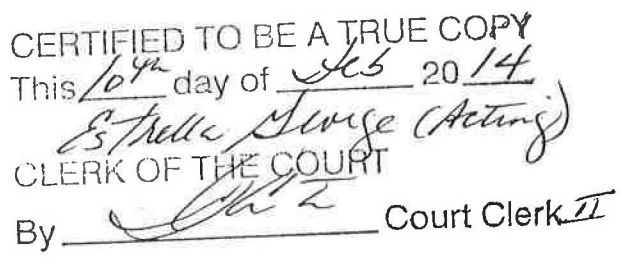 CERTIFIED TO BE A TRUE COPY
This 10th day of Feb 20 14
Estrella George (Acting)
CLERK OF THE COURT
By Court Clerk II